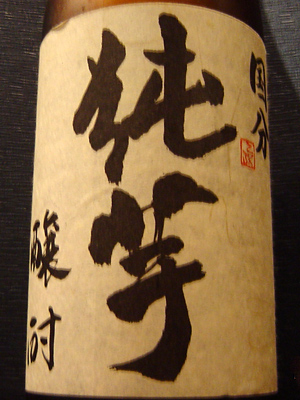 国分
純芋
醸酎